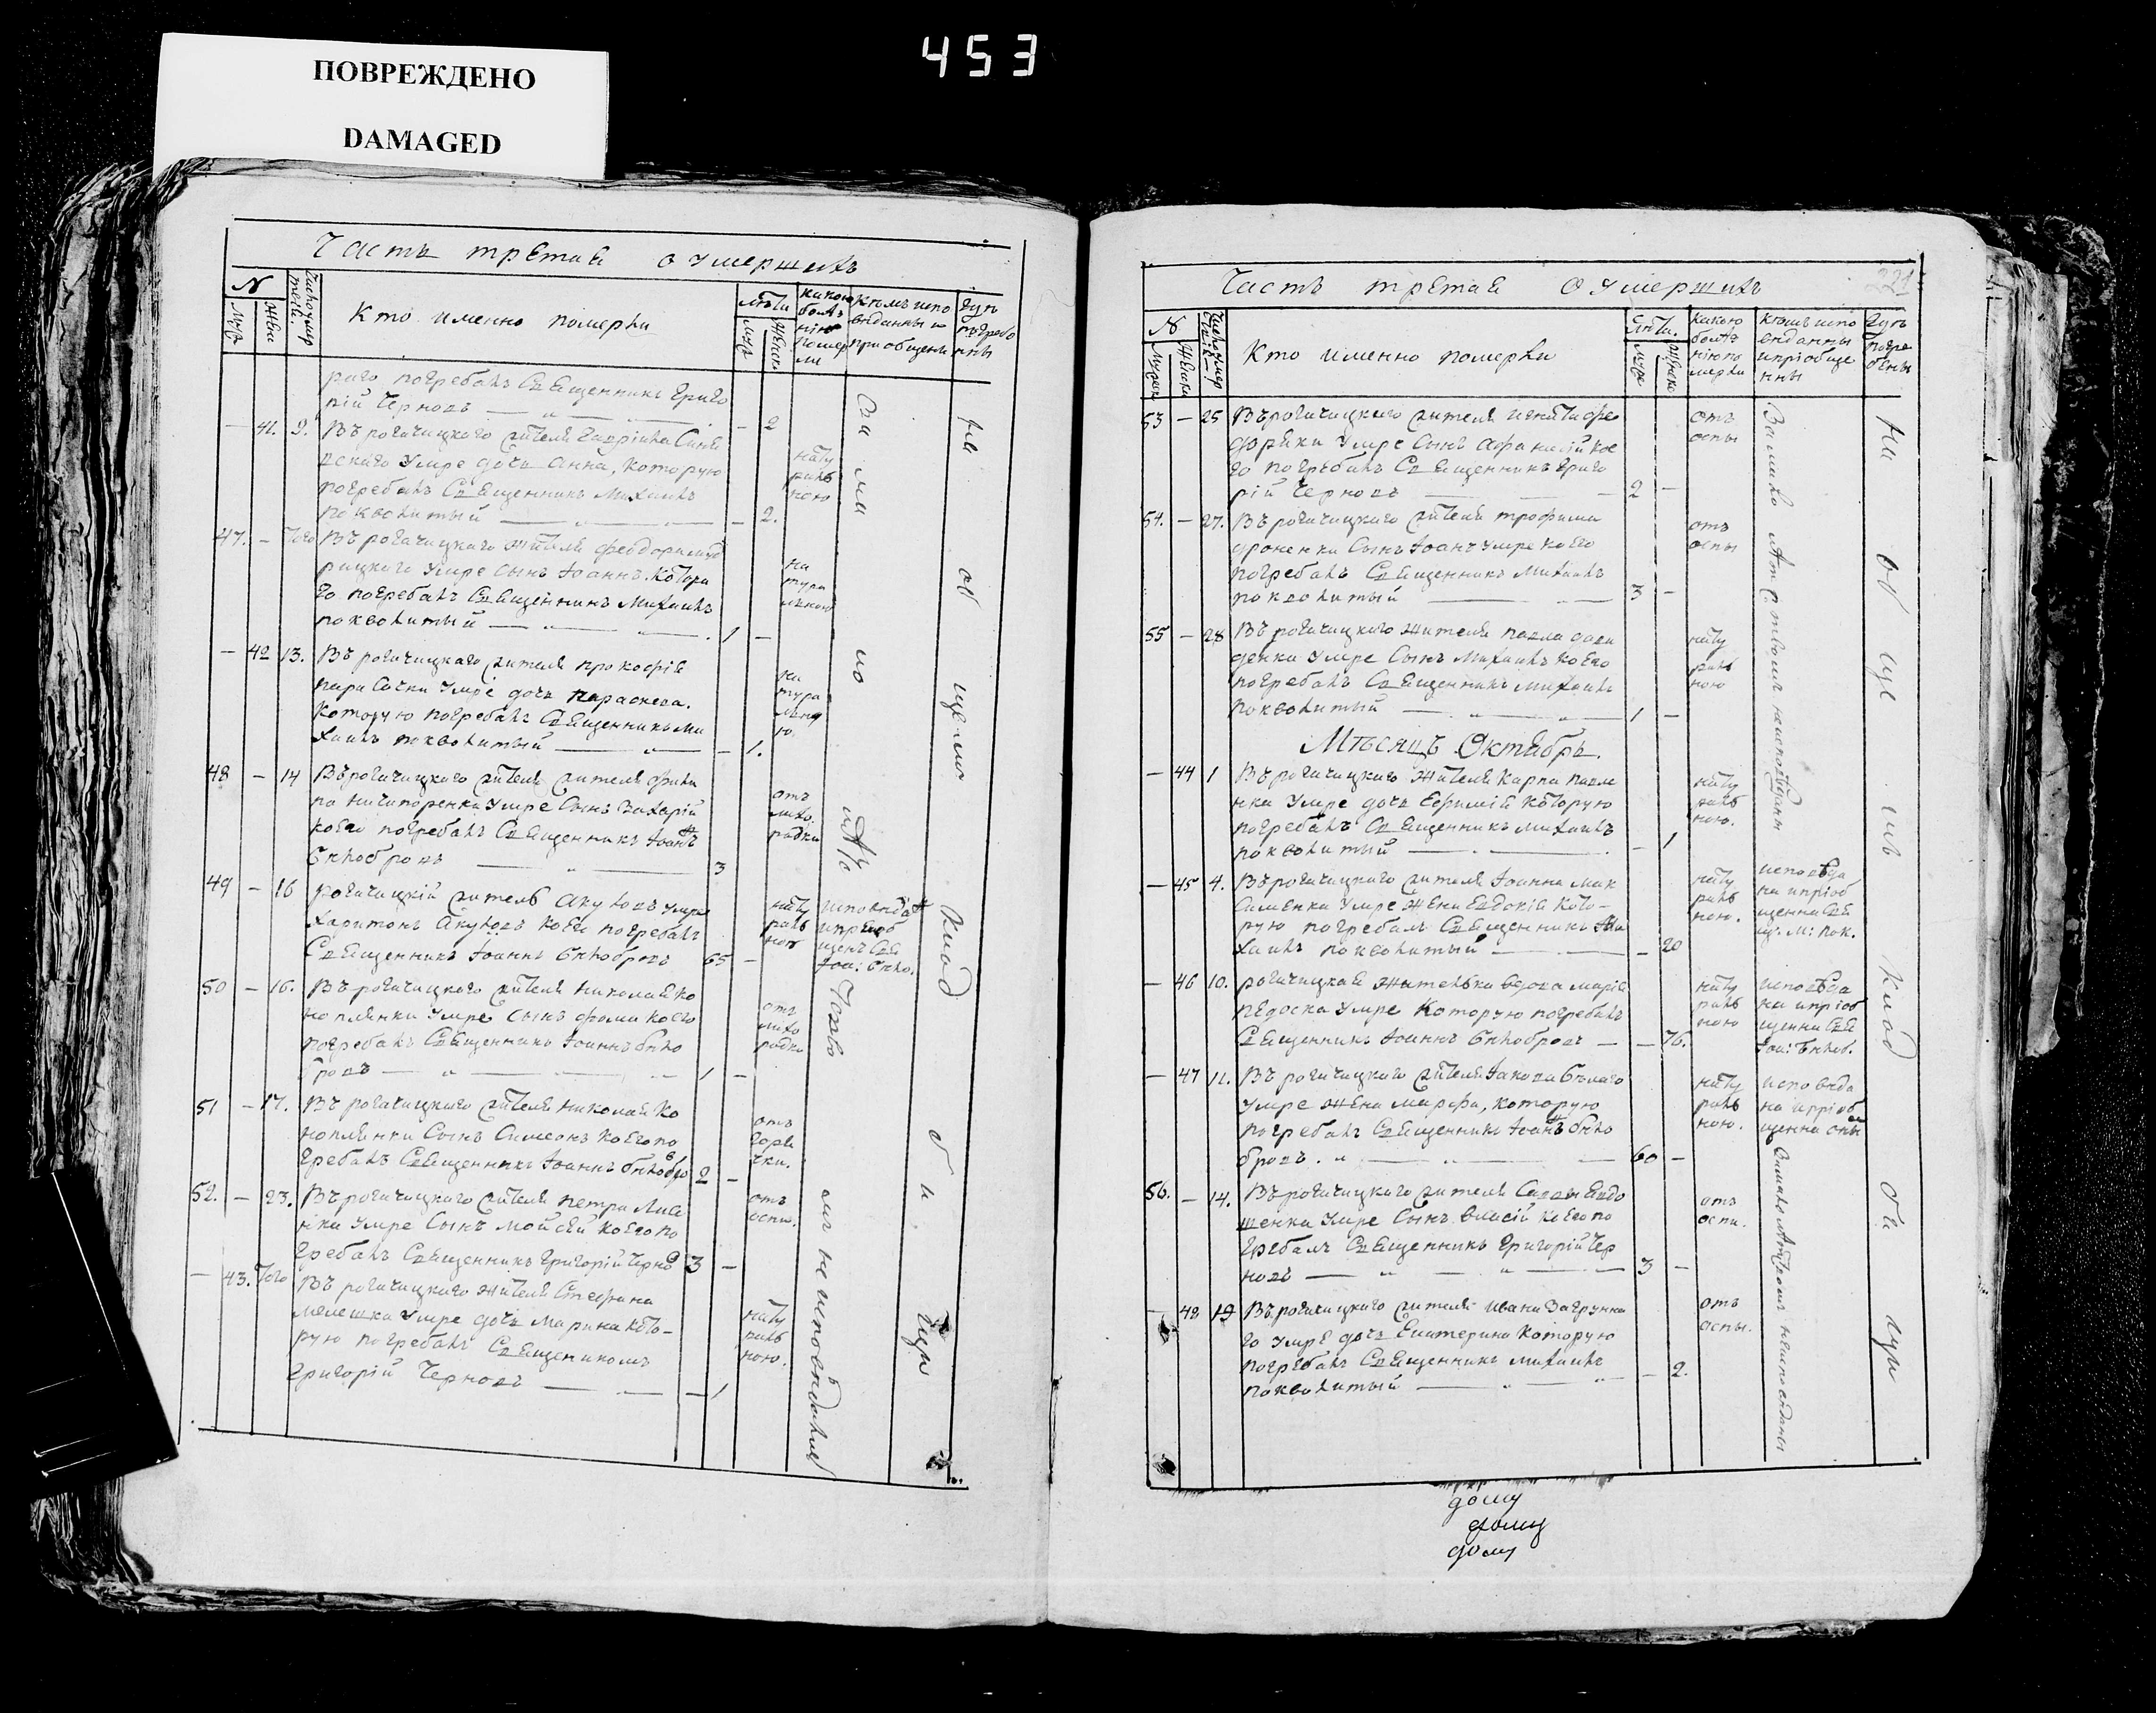 453
ПОВРЕЖДЕНО
DAMAGED
Часть третая о умершихъ
N
Муж
Жен
Кто именно померли
лѣта
Муж
Женск.
какою
болѣз
нію
померли
Кѣмъ испо
вѣданны и
приобщени
Гдѣ
погребе
нны
раго погребалъ Священникъ Григо
рій Черновъ
2
41. 9. Въ рогачицкаго жителя Гавріила Синя
вскаго умре дочь Анна, которую
погребалъ Священникъ Михаилъ
поквалитый 2.
нату
раль
ною
47. Того Въ рогачицкаго жителя Феодора
рицкаго умре сынъ Іоаннъ. Котора
го погребалъ Священникъ Михаилъ
поквалитый 1
на
тура
льною
42 13. Въ рогачицкаго жителя прокофія
умре дочь параскева.
Которую погребалъ Священникъ Ми
хаилъ поквалитый 1.
на
тура
льно
ю
48 14 Въ рогачицкаго жителя жителя фили
па ничипоренка умре сынъ Захарій
коего погребалъ Священникъ Іоаннъ
Бѣлобровъ 3
отъ
лихо
радки
49 16 рогачицкій житель Акуловъ умре
Харитонъ Акуловъ коего погребалъ
Священникъ Іоаннъ Бѣлобровъ 65
нату
раль
ною
исповѣда
и пріоб
щенъ Свя
Іоа: Бѣло.
50 16. Въ рогачицкаго жителя николая ко
ноплянки умре сынъ фома коего
погребалъ Священникъ Іоаннъ бѣло
бровъ 1
отъ
лихо
радки
51 17. Въ рогачицкаго жителя николая Ко
ноплянки Сынъ Симеонъ коего по
гребалъ Священникъ Іоаннъ бѣлобро 2
отъ
горя
чки.
52. 23. Въ рогачицкаго жителя петра Лися
нка умре Сынъ мойсей коего по
гребалъ Священникъ Григорій Черно 3
отъ
оспы.
43. Того Въ рогачицкаго жителя Стефана
мелешка умре дочь Марина кото-
рую погребалъ Священикомъ
Григорій Черновъ 1
нату
раль
ною.
на общемъ кладби
щи
не исповѣданы
221
Часть третая о умершихъ
N
Мужск
Женск
Кто именно померли
Лѣта.
Муж
Женск
какою
болѣз
нію по
мерли
кѣмъ испо
вѣданны
и пріобще
нны
Гдѣ
погре
бены
53 25 Въ рогачицкаго жителя игната фе
доряки умре Сынъ Афанасій кое
го погребалъ Священникъ Григо
рій Черновъ 2
отъ
оспы
54. 27. Въ рогачицкаго жителя трофима
дроненка Сынъ Іоанъ умре коего
погребалъ Священникъ Михаилъ
поквалитый 3
отъ
оспы
55 28 Въ рогачицкаго жителя павла дави
денка умре Сынъ Михаилъ коего
погребалъ Священникъ Михаилъ
поквалитый 1
нату
раль
ною
Мѣсяцъ Октябрь.
44 1 Въ рогачицкаго Жителя Карпа павле
нка умре дочь Ефимія Которую
погребалъ Священникъ Михаилъ
поквалитый 1
нату
раль
ною.
45 4. Въ рогачицкаго жителя Іоанна Мак
сименка умре жена Евдокія Кото-
рую погребалъ Священникъ Ми
хаилъ поквалитый 20
нату
раль
ною.
исповѣда
на и пріоб
щенна Свя
щ: М: пок.
46 10. рогачицкая жителька вдова Марія
педоска умре Которую погребалъ
Священникъ Іоаннъ Бѣлобровъ 76.
нату
раль
ною
исповѣда
на и пріоб
щенна Свя
Іоа: Бѣлоб.
47 11. Въ рогачицкаго жителя Іакова бѣлаго
умре жена марфа, которую
погребалъ Священникъ Іоаннъ бѣло
бровъ. 60
нату
раль
ною.
исповѣда
на и пріоб
щенна
56. 14. Въ рогачицкаго жителя Саввы Явдо
шенка умре Сынъ власій коего по
гребалъ Священникъ Григорій Чер
новъ 3
отъ
оспы.
48 19 Въ рогачицкаго жителя Ивана Загрунна
го умре дочь Екатерина Которую
погребалъ Священникъ Михаилъ
поквалитый 2.
отъ
аспы.
За мало не исповѣданы
не исповѣданы
На обще кладби щи
дому
дому
дому